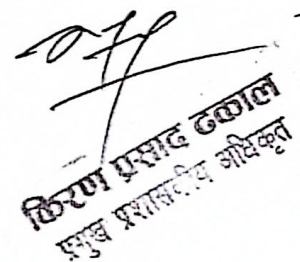 किरण प्रसाद ढकाल
प्रमुख प्रशासकीय अधिकृत